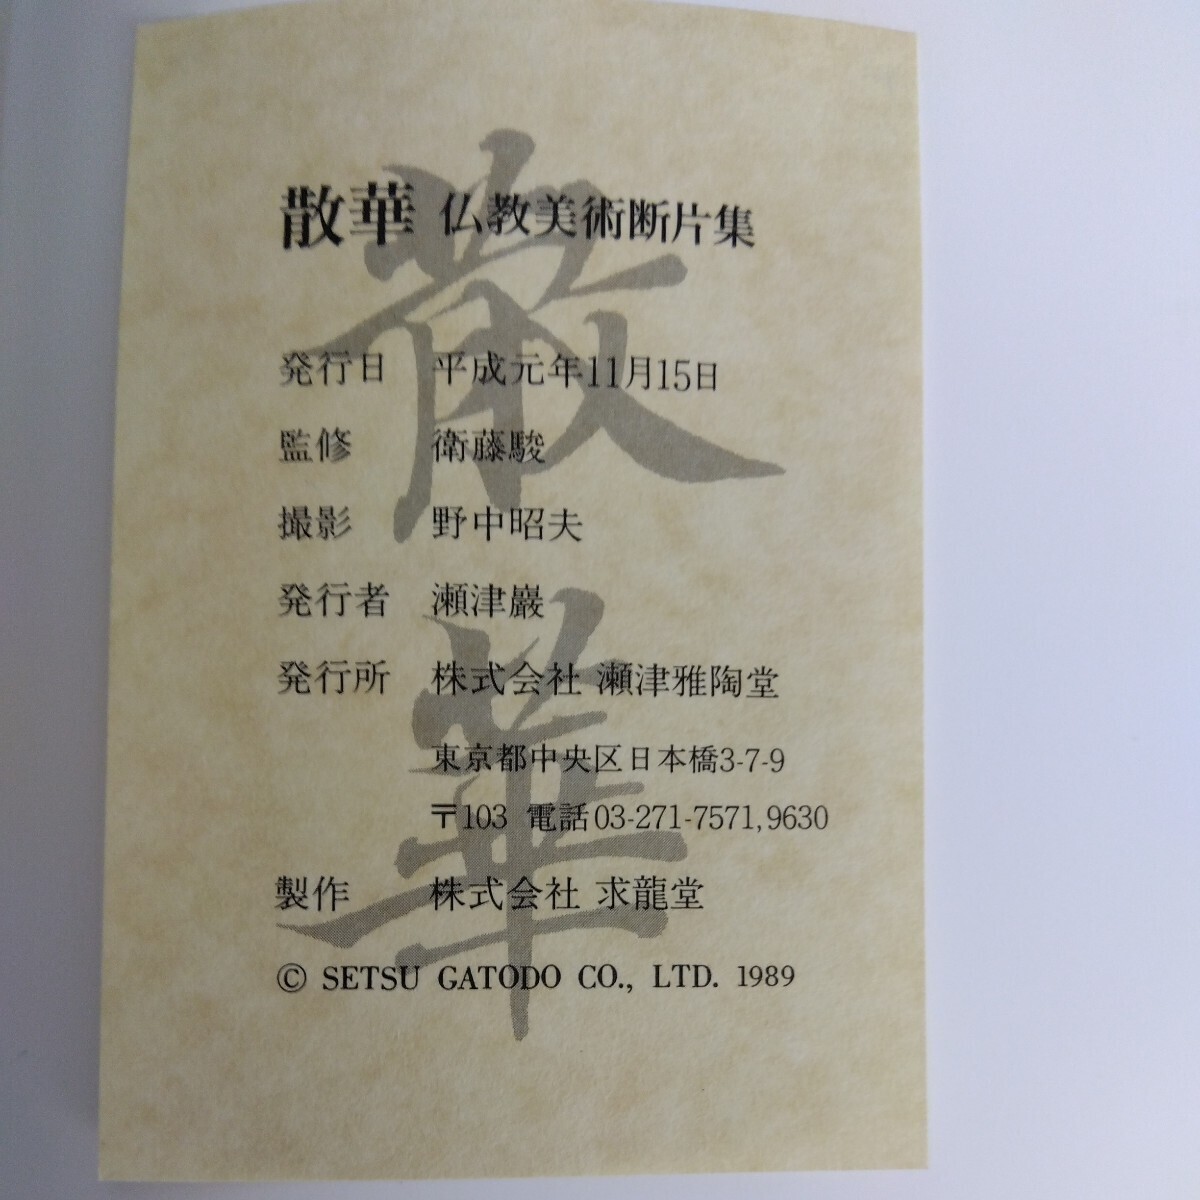 散華 仏教美術断片集
発行日 平成元年11月15日
監修 衛藤駿
撮影 野中昭夫
発行者 瀬津巖
発行所 株式会社 瀬津雅陶堂
東京都中央区日本橋3-7-9
〒103 電話03-271-7571,9630
製作 株式会社 求龍堂
© SETSU GATODO CO., LTD. 1989
散華